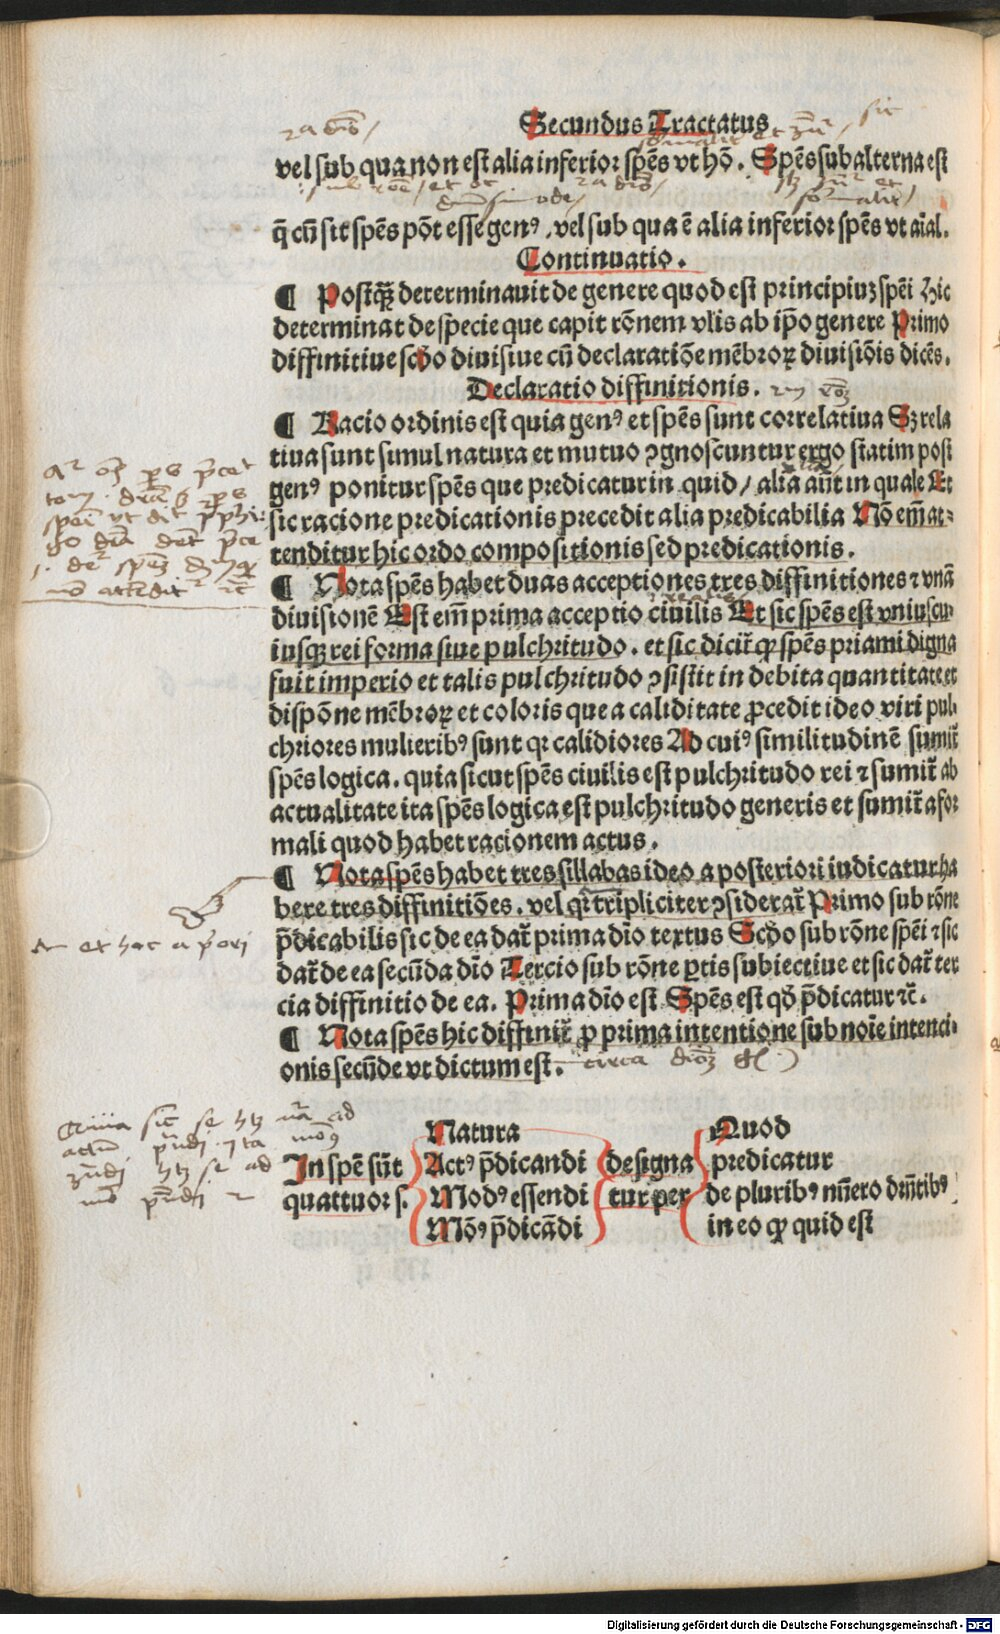 Secundus Tractatus
vel sub qua non est alia inferior spēs vt hō. Spēs subalterna est
q̄ cū sit spēs pōt esse genꝰ, vel sub qua ē alia inferior spēs vt aīal.
Continuatio.
¶ Postq̄ꝫ determinauit de genere quod est principiuꝫ spēi hic
determinat de specie que capit rōnem vlis ab ip̄o genere Primo
diffinitiue scd̄o diuisiue cū declaratiōe mēbroꝝ diuisiōis dicēs.
Declaratio diffinitionis.
¶ Racio ordinis est quia genꝰ et spēs sunt correlatiua Sꝫ rela
tiua sunt simul natura et mutuo ꝯgnoscuntur ergo statim post
genꝰ ponitur spēs que predicatur in quid / alia aūt in quale Et
sic racione predicationis precedit alia predicabilia Nō em̄ at⸗
tenditur hic ordo compositionis sed predicationis.
¶ Nota spēs habet duas acceptiones tres diffinitiones ⁊ vnā
diuisionē Est em̄ prima acceptio ciuilis Et sic spēs est vniuscu
iusqꝫ rei forma siue pulchritudo. et sic dicit̄ ꝙ spēs priami digna
fuit imperio et talis pulchritudo ꝯsistit in debita quantitate et
dispōne mēbroꝝ et coloris que a caliditate ꝓcedit ideo viri pul
chriores mulieribꝰ sunt qꝛ calidiores Ad cuiꝰ similitudinē sumit̄
spēs logica. quia sicut spēs ciuilis est pulchritudo rei ⁊ sumit̄ ab
actualitate ita spēs logica est pulchritudo generis et sumit̄ a for
mali quod habet racionem actus.
¶ Nota spēs habet tres sillabas ideo a posteriori iudicatur ha
bere tres diffinitiōes. vel qꝛ tripliciter ꝯsiderat̄ Primo sub rōne
p̄dicabilis sic de ea dat̄ prima dīo textus Scd̄o sub rōne spēi ⁊ sic
dat̄ de ea secūda dīo Tercio sub rōne ꝑtis subiectiue et sic dat̄ ter
cia diffinitio de ea. Prima dīo est Spēs est qd̄ p̄dicatur ⁊c̄.
¶ Nota spēs hic diffinit̄ ꝓ prima intentione sub noīe intenci⸗
onis secūde vt dictum est.
Natura Quod
In spē sūt Actꝰ p̄dicandi designa predicatur
quattuor s. Modꝰ essendi tur per de pluribꝰ nūero dr̄ntibꝰ
Mōꝰ p̄dicādi in eo ꝙ quid est
Digitalisierung gefördert durch die Deutsche Forschungsgemeinschaft - DFG